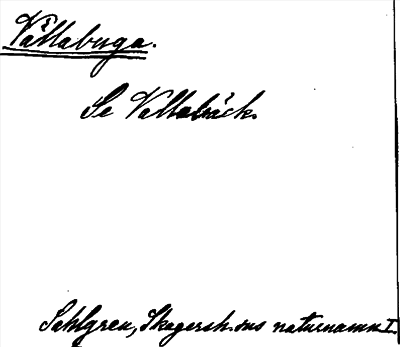 Vållabuga.
Se Vallabäck.
Sahlgren, Skagersh.sns naturnamn I.